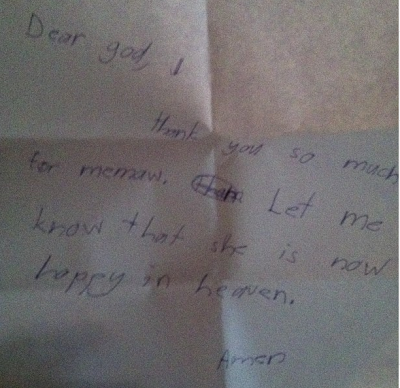 Dear god,
thank you so much
for memaw. Let me
know that she is now
happy in heaven.
Amen